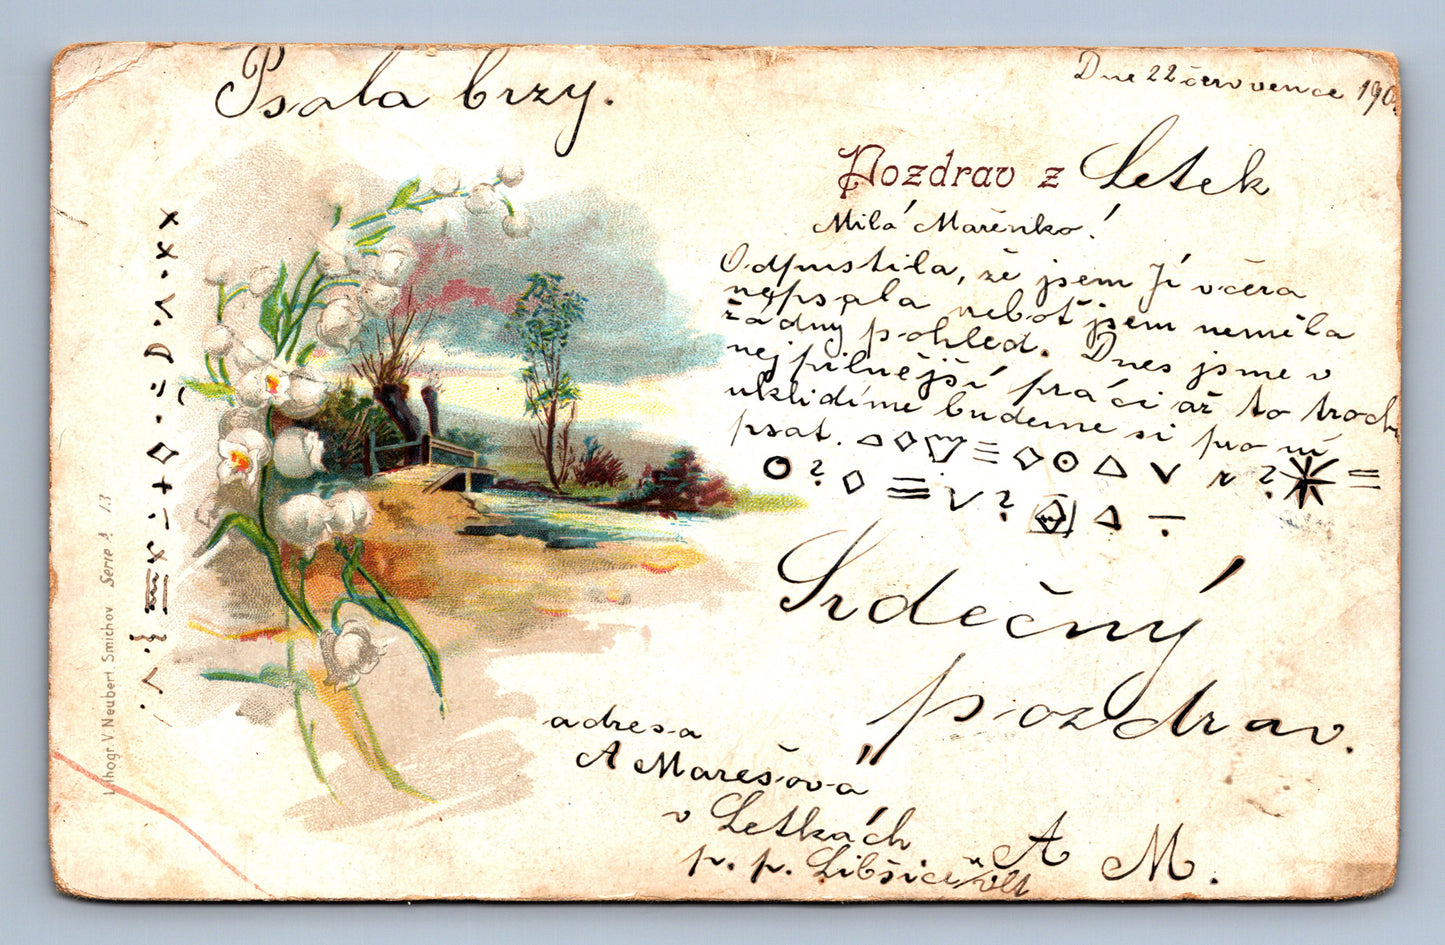 Psala brzy.
Dne 22 července 190
Pozdrav z Letek
Milá Mařenko!
Odpustila, že jsem Jí včera
nepsala neboť jsem neměla
žádný pohled. Dnes jsme v
nejpilnější práci až to troch
uklidíme budeme si pro ní
psat.
Srdečný
pozdrav.
adresa
A Marešová
v Letkách
p. p. Libšice
A M.
Lithogr V Neubert Smichov Serie 1 13